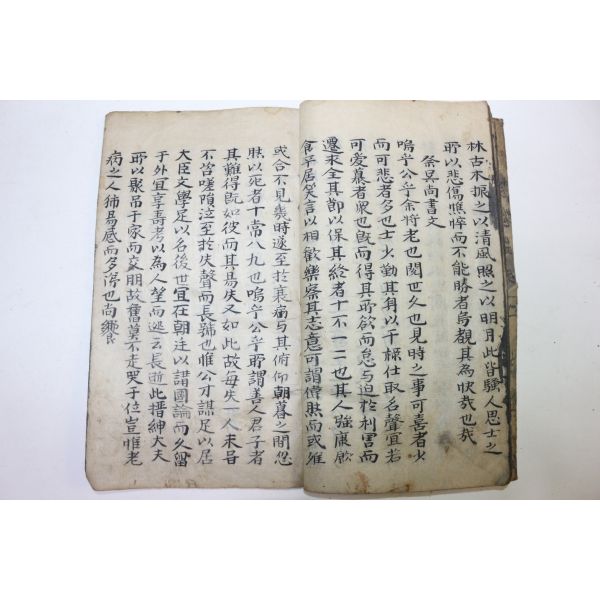 林古木振之以清風照之以明月此皆騷人思士之
所以悲傷憔悴而不能勝者烏覩其為快哉也哉
祭吳尚書文
嗚乎公乎余將老也閱世久也見時之事可喜者少
而可悲者多也士少勤其身以干祿仕取名聲宜若
可愛慕者衆也旣而得其所欲而怠与迫於利害而
遷求全其節以保其終者十不一二也其人強康飮
食平居笑言以相歡樂察其志意可謂偉然而或離
或合不見幾時遂至於衰病与其俯仰朝暮之間忽
然以死者十常八九也嗚乎公乎所謂善人君子者
其難得旣如彼而其易失又如此故每失一人未甞
不咨嗟殞泣至於失聲而長號也惟公才謀足以居
大臣文學足以名後世宜在朝廷以講國論而久留
于外宜享壽考以為人望而遽云長逝此搢紳大夫
所以聚吊于家而交朋故舊莫不走哭于位豈惟老
病之人獨易感而多涕也尚饗